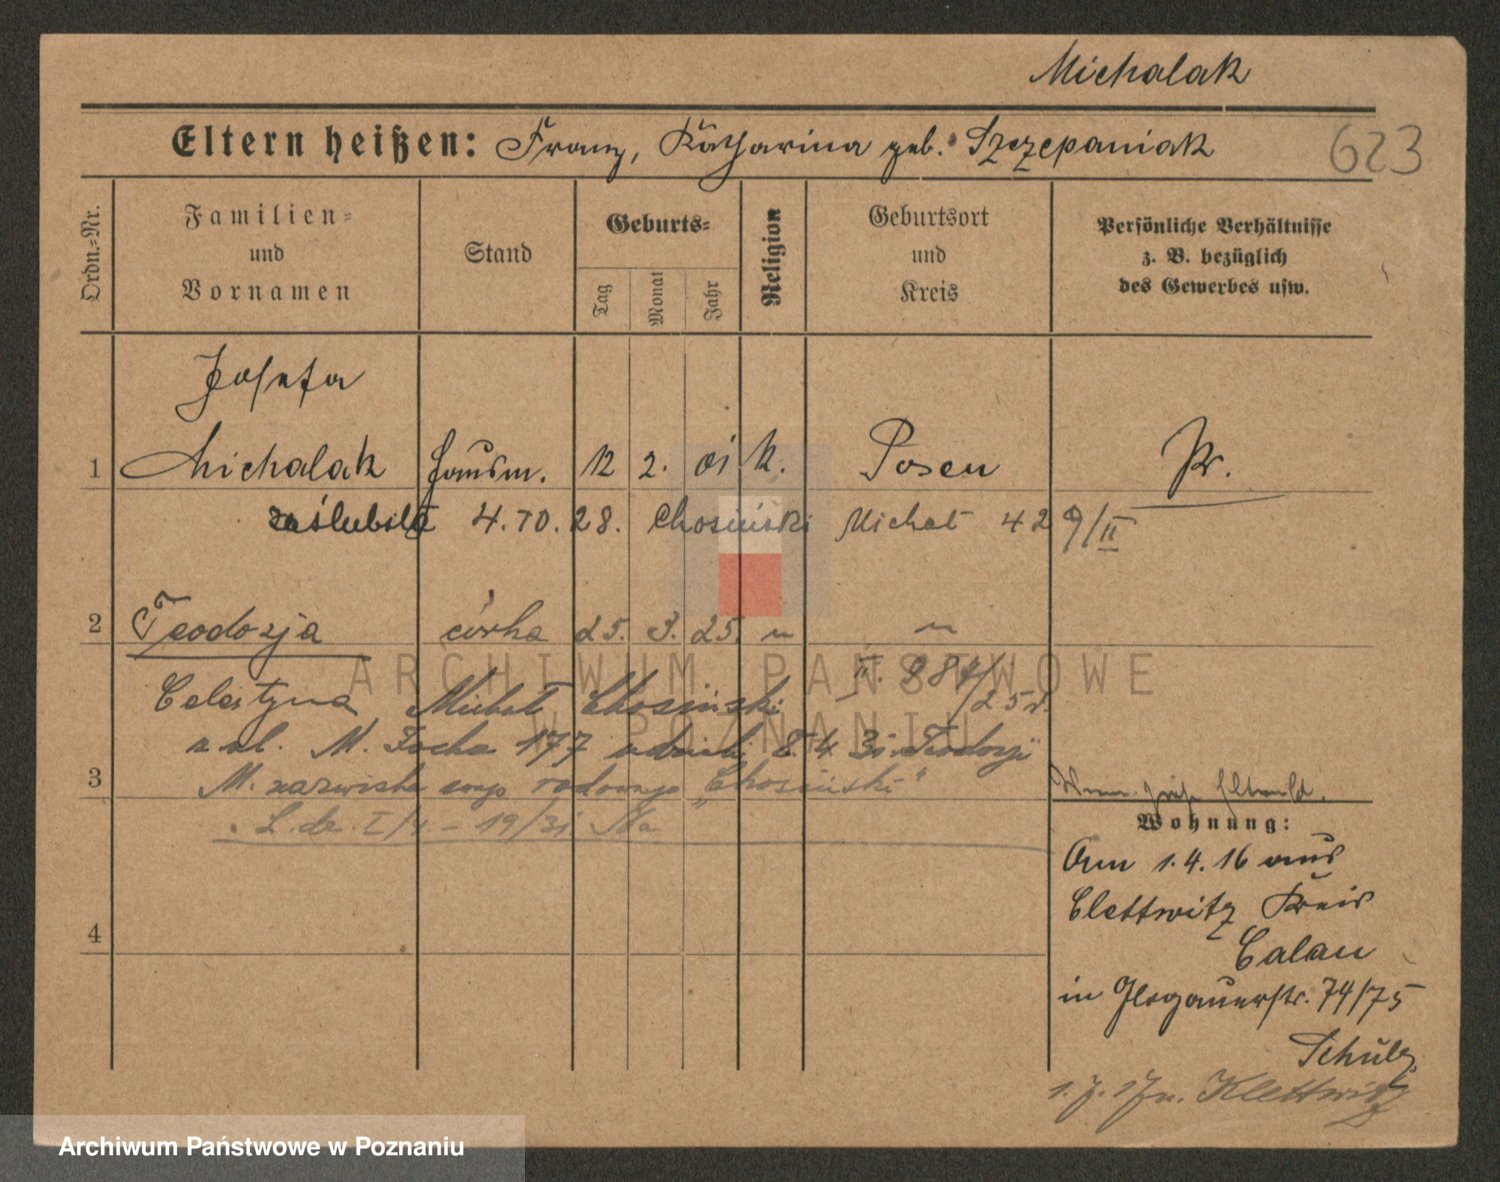 Michalak
Eltern heißen: Franz, Katharina geb. Szczepaniak
623
Ordn.=Nr.
Familien=
und
Vornamen
Stand
Geburts=
Tag
Monat
Jahr
Religion
Geburtsort
und
Kreis
Persönliche Verhältnisse
z. B. bezüglich
des Gewerbes usw.
Josefa
1 Michalak Hausm. 12 2. 01 k. Posen Pr.
zaślubiła 4.10.28. Chosiński Michał 42 9/II
2 Teodozja córka 25. 3. 25. " "
Celestyna Michał Chosiński II. 884/25 r.
M. Focha 177 8.4.31 Teodozji
3 M. nazwisko rodowe „Chosiński"
L. dz. I/4 - 19/31
Wohnung:
Am 1.4.16 aus
Clettwitz Kreis
Calau
4
in Glogauerstr. 74/75
Schulz
1.7.17 n. Klettwitz
ARCHIWUM PAŃSTWOWE
W POZNANIU
Archiwum Państwowe w Poznaniu